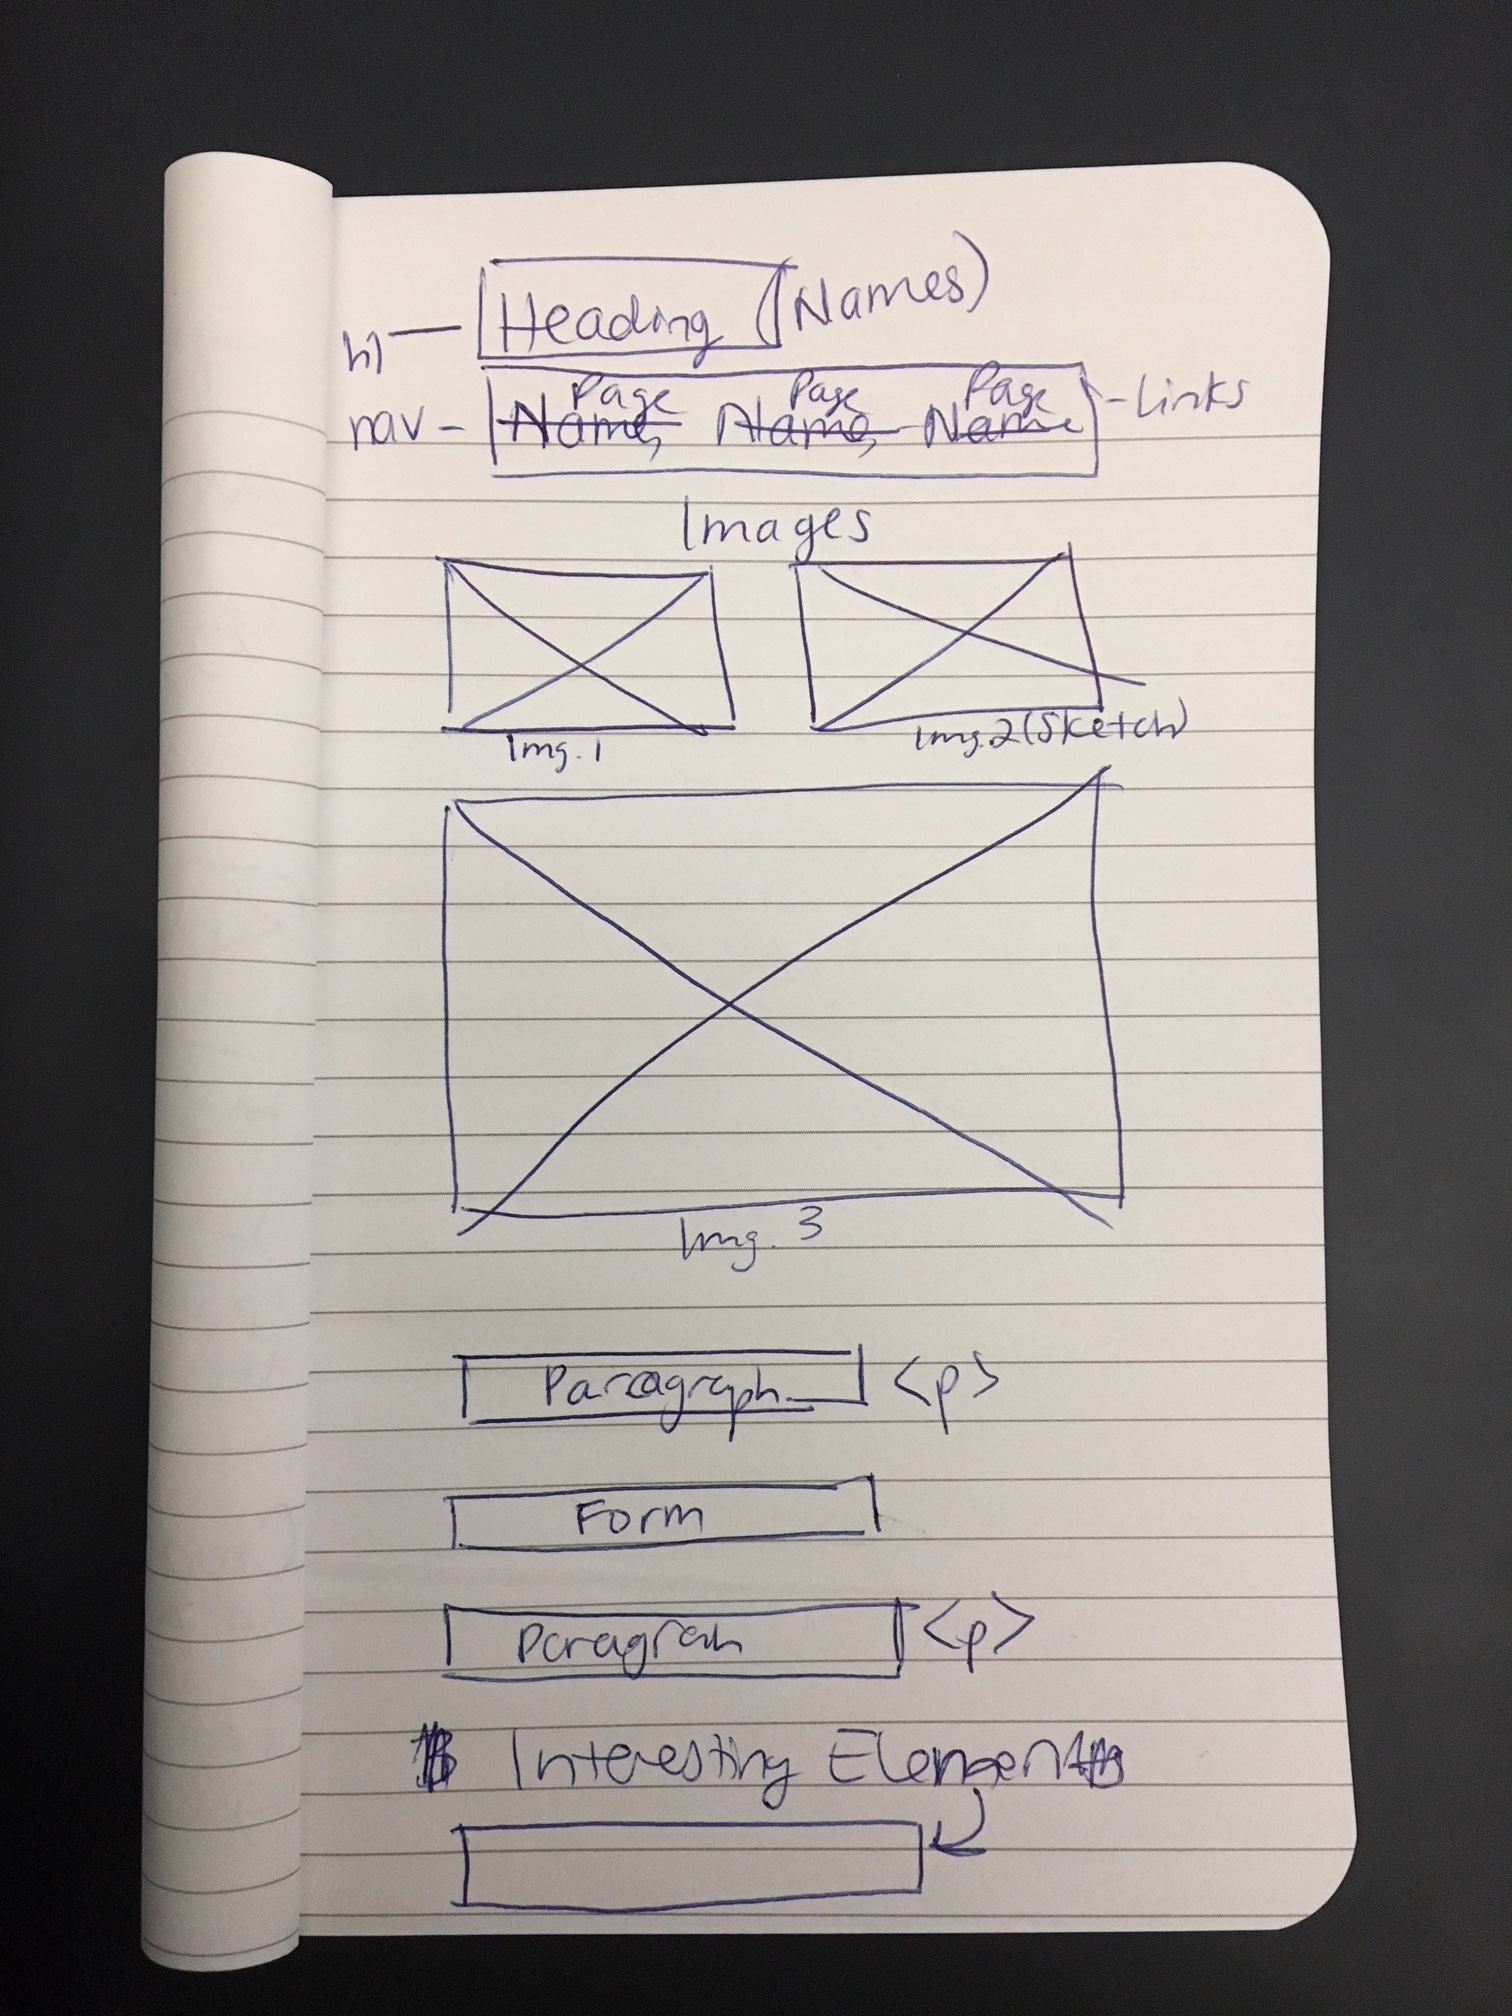 h1 — Heading (Names)
Page Page Page
nav - Name, Name, Name - Links
Images
Img. 1
Img. 2 (Sketch)
Img. 3
Paragraph <p>
Form
Paragrah <p>
Interesting Element